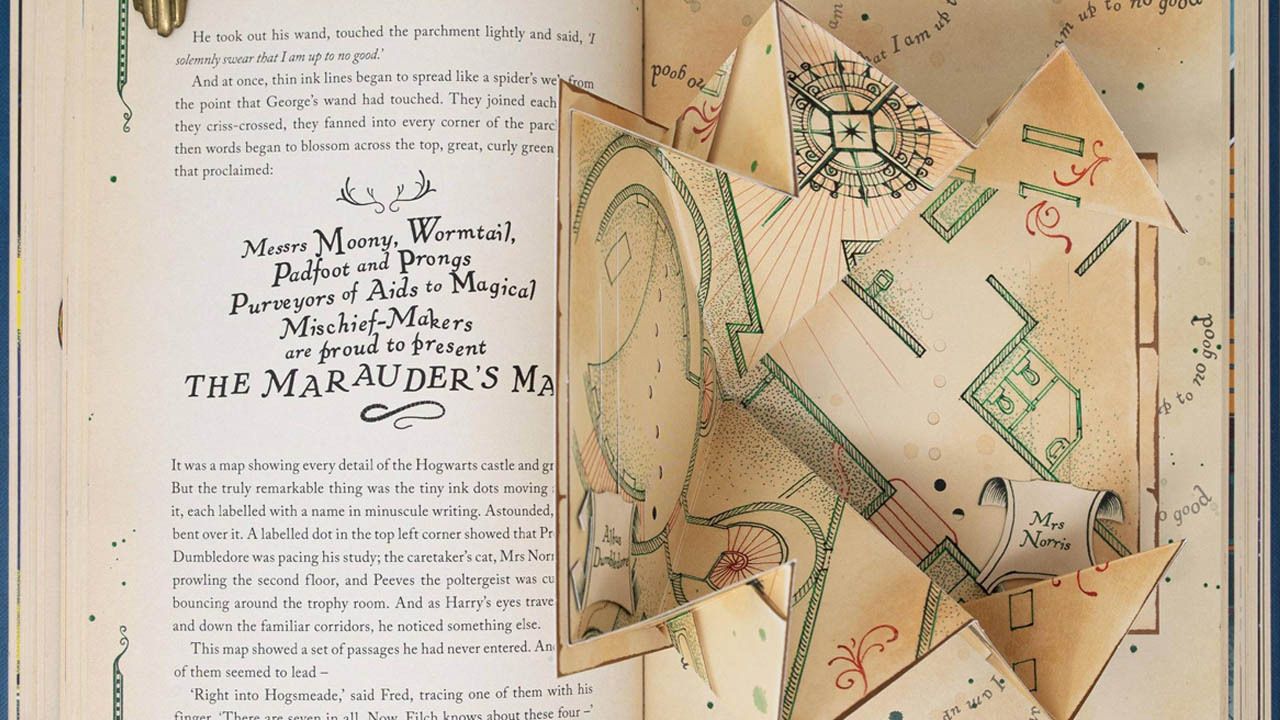 He took out his wand, touched the parchment lightly and said, ‘I
solemnly swear that I am up to no good.’
And at once, thin ink lines began to spread like a spider’s web from
the point that George’s wand had touched. They joined each
they criss-crossed, they fanned into every corner of the parc
then words began to blossom across the top, great, curly green
that proclaimed:
Messrs Moony, Wormtail,
Padfoot and Prongs
Purveyors of Aids to Magical
Mischief-Makers
are proud to present
THE MARAUDER’S MA
It was a map showing every detail of the Hogwarts castle and gr
But the truly remarkable thing was the tiny ink dots moving
it, each labelled with a name in minuscule writing. Astounded,
bent over it. A labelled dot in the top left corner showed that Pr
Dumbledore was pacing his study; the caretaker’s cat, Mrs Nor
prowling the second floor, and Peeves the poltergeist was cu
bouncing around the trophy room. And as Harry’s eyes trave
and down the familiar corridors, he noticed something else.
This map showed a set of passages he had never entered. An
of them seemed to lead –
‘Right into Hogsmeade,’ said Fred, tracing one of them with his
finger. ‘There are seven in all. Now, Filch knows about these four –’
am up to no good
at I am up to
am
to no good
up to no good
o good
I am up
Albus
Dumbledore
Mrs
Norris